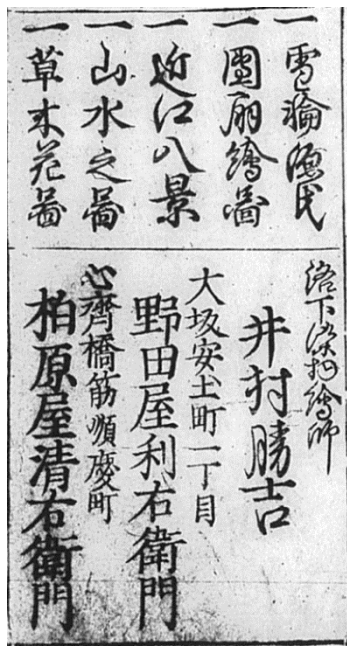 一雪輪源氏
一團扇繪啚
一近江八景
一山水之啚
一草木花啚
洛下染物繪師
井村勝吉
大坂安圡町一丁目
野田屋利右衛門
心齊橋筋順慶町
柏原屋清右衛門